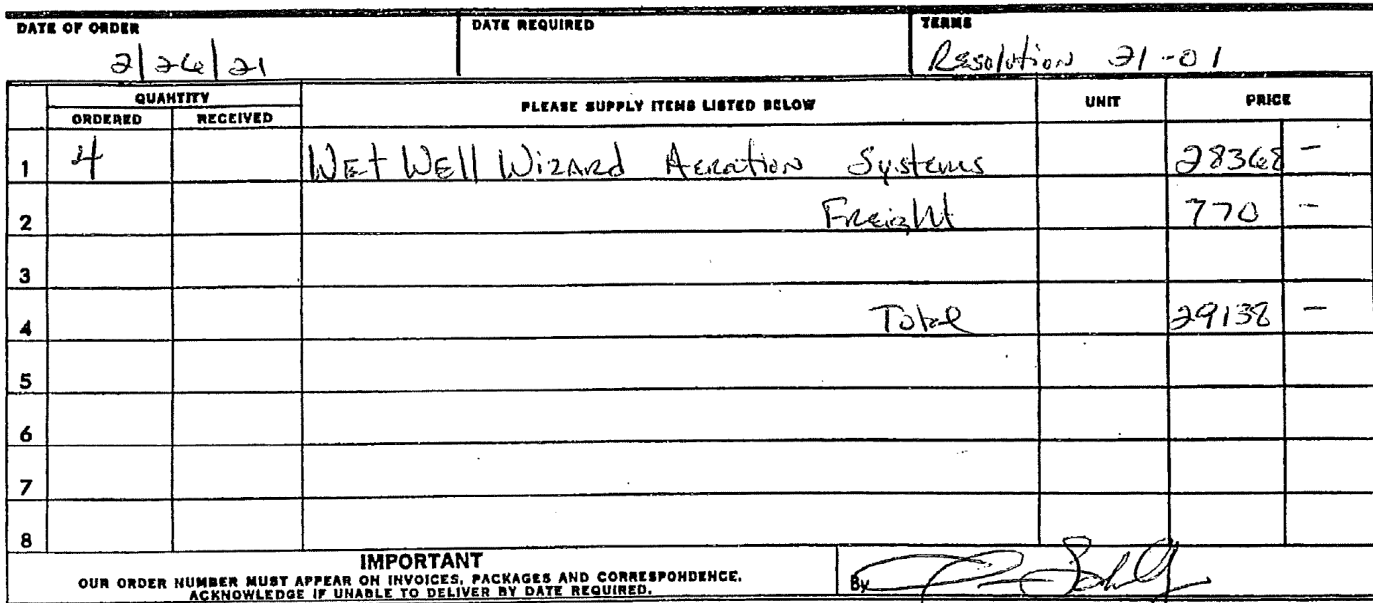 DATE OF ORDER DATE REQUIRED TERMS
2/26/21 Resolution 21-01
QUANTITY PLEASE SUPPLY ITEMS LISTED BELOW UNIT PRICE
ORDERED RECEIVED
1 4 Wet Well Wizard Aeration Systems 28368 -
2 Freight 770 -
3
4 Total 29138 -
5
6
7
8
IMPORTANT
OUR ORDER NUMBER MUST APPEAR ON INVOICES, PACKAGES AND CORRESPONDENCE.
ACKNOWLEDGE IF UNABLE TO DELIVER BY DATE REQUIRED.
By